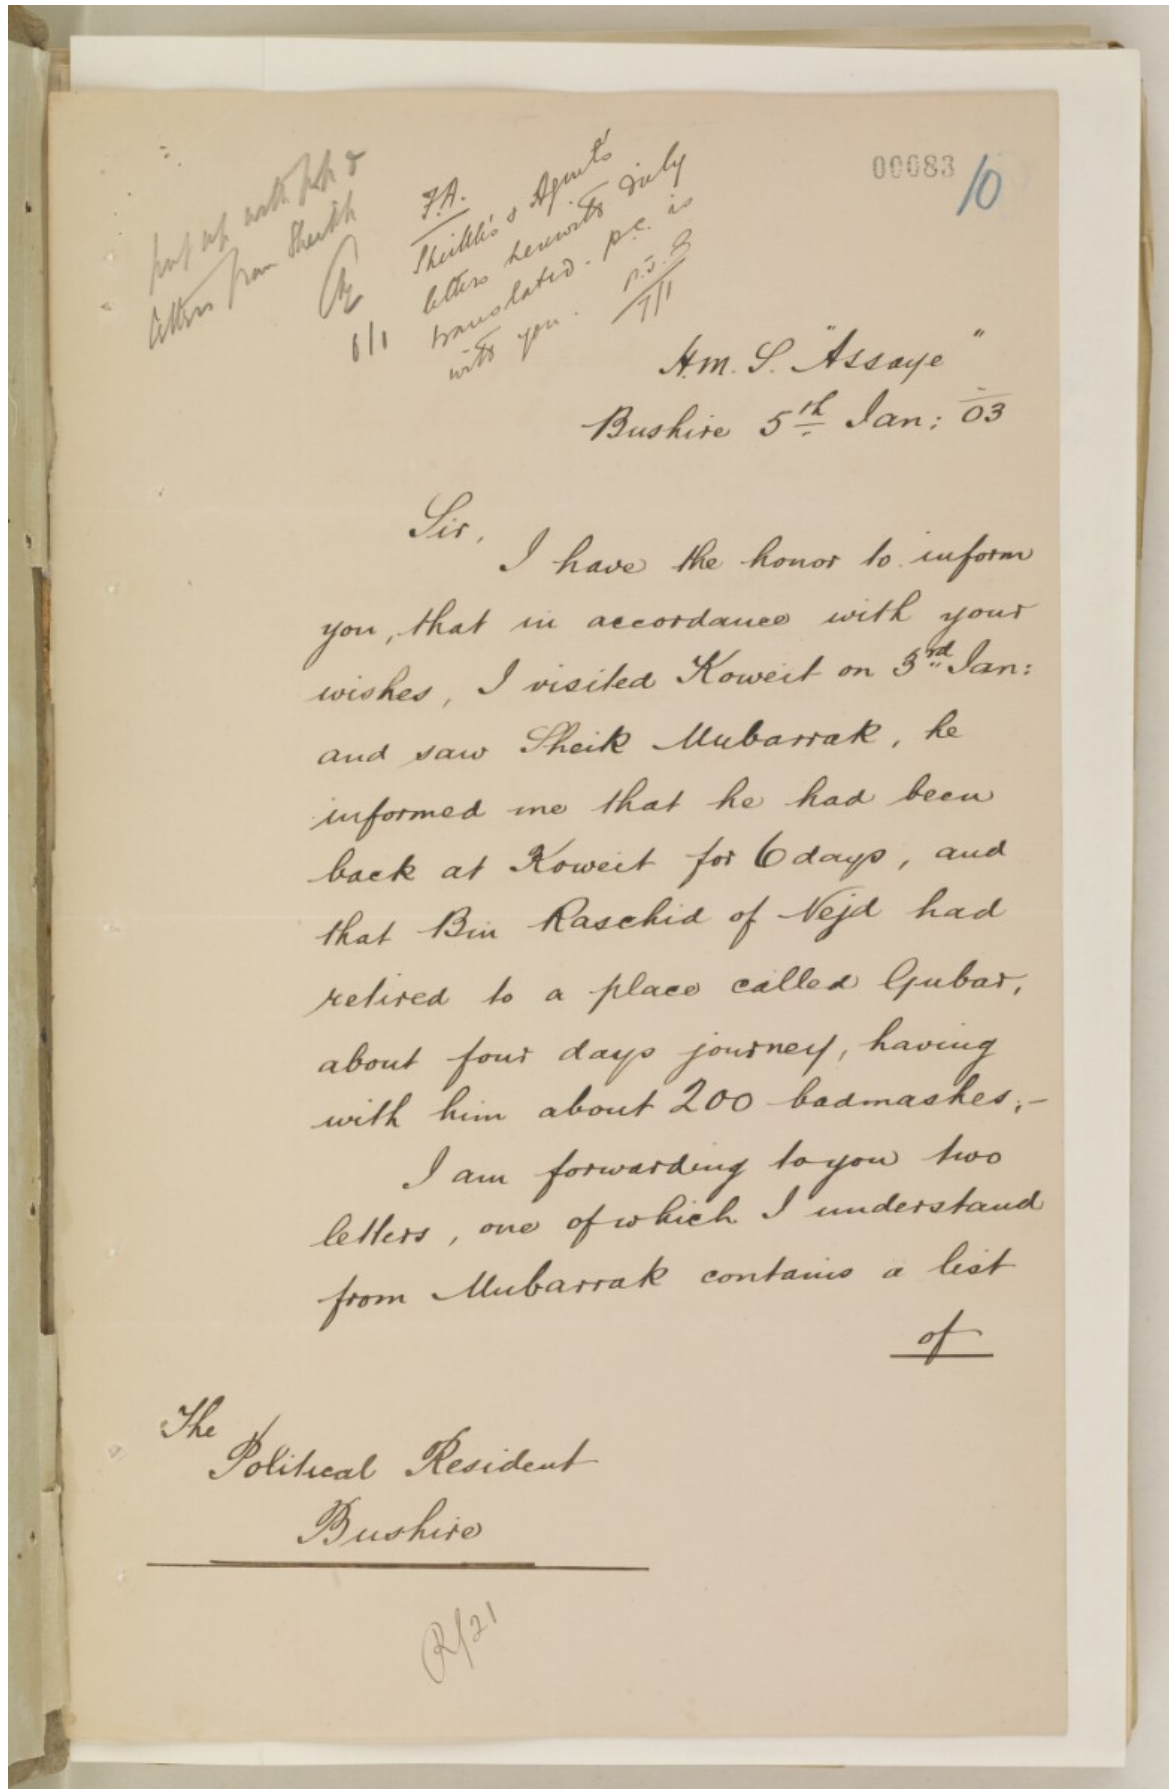 00083 10
put up with
letters from Sheikh
6/1
F.A.
Sheikh's & Agent's
letters herewith duly
translated. p.c. is
with you.
7/1
H.M.S. "Assaye"
Bushire 5th Jan: 03
Sir,
I have the honor to inform
you, that in accordance with your
wishes, I visited Koweit on 3rd Jan:
and saw Sheik Mubarrak, he
informed me that he had been
back at Koweit for 6 days, and
that Bin Raschid of Nejd had
retired to a place called Gubar,
about four days journey, having
with him about 200 badmashes;-
I am forwarding to you two
letters, one of which I understand
from Mubarrak contains a list
of
The
Political Resident
Bushire
R/21